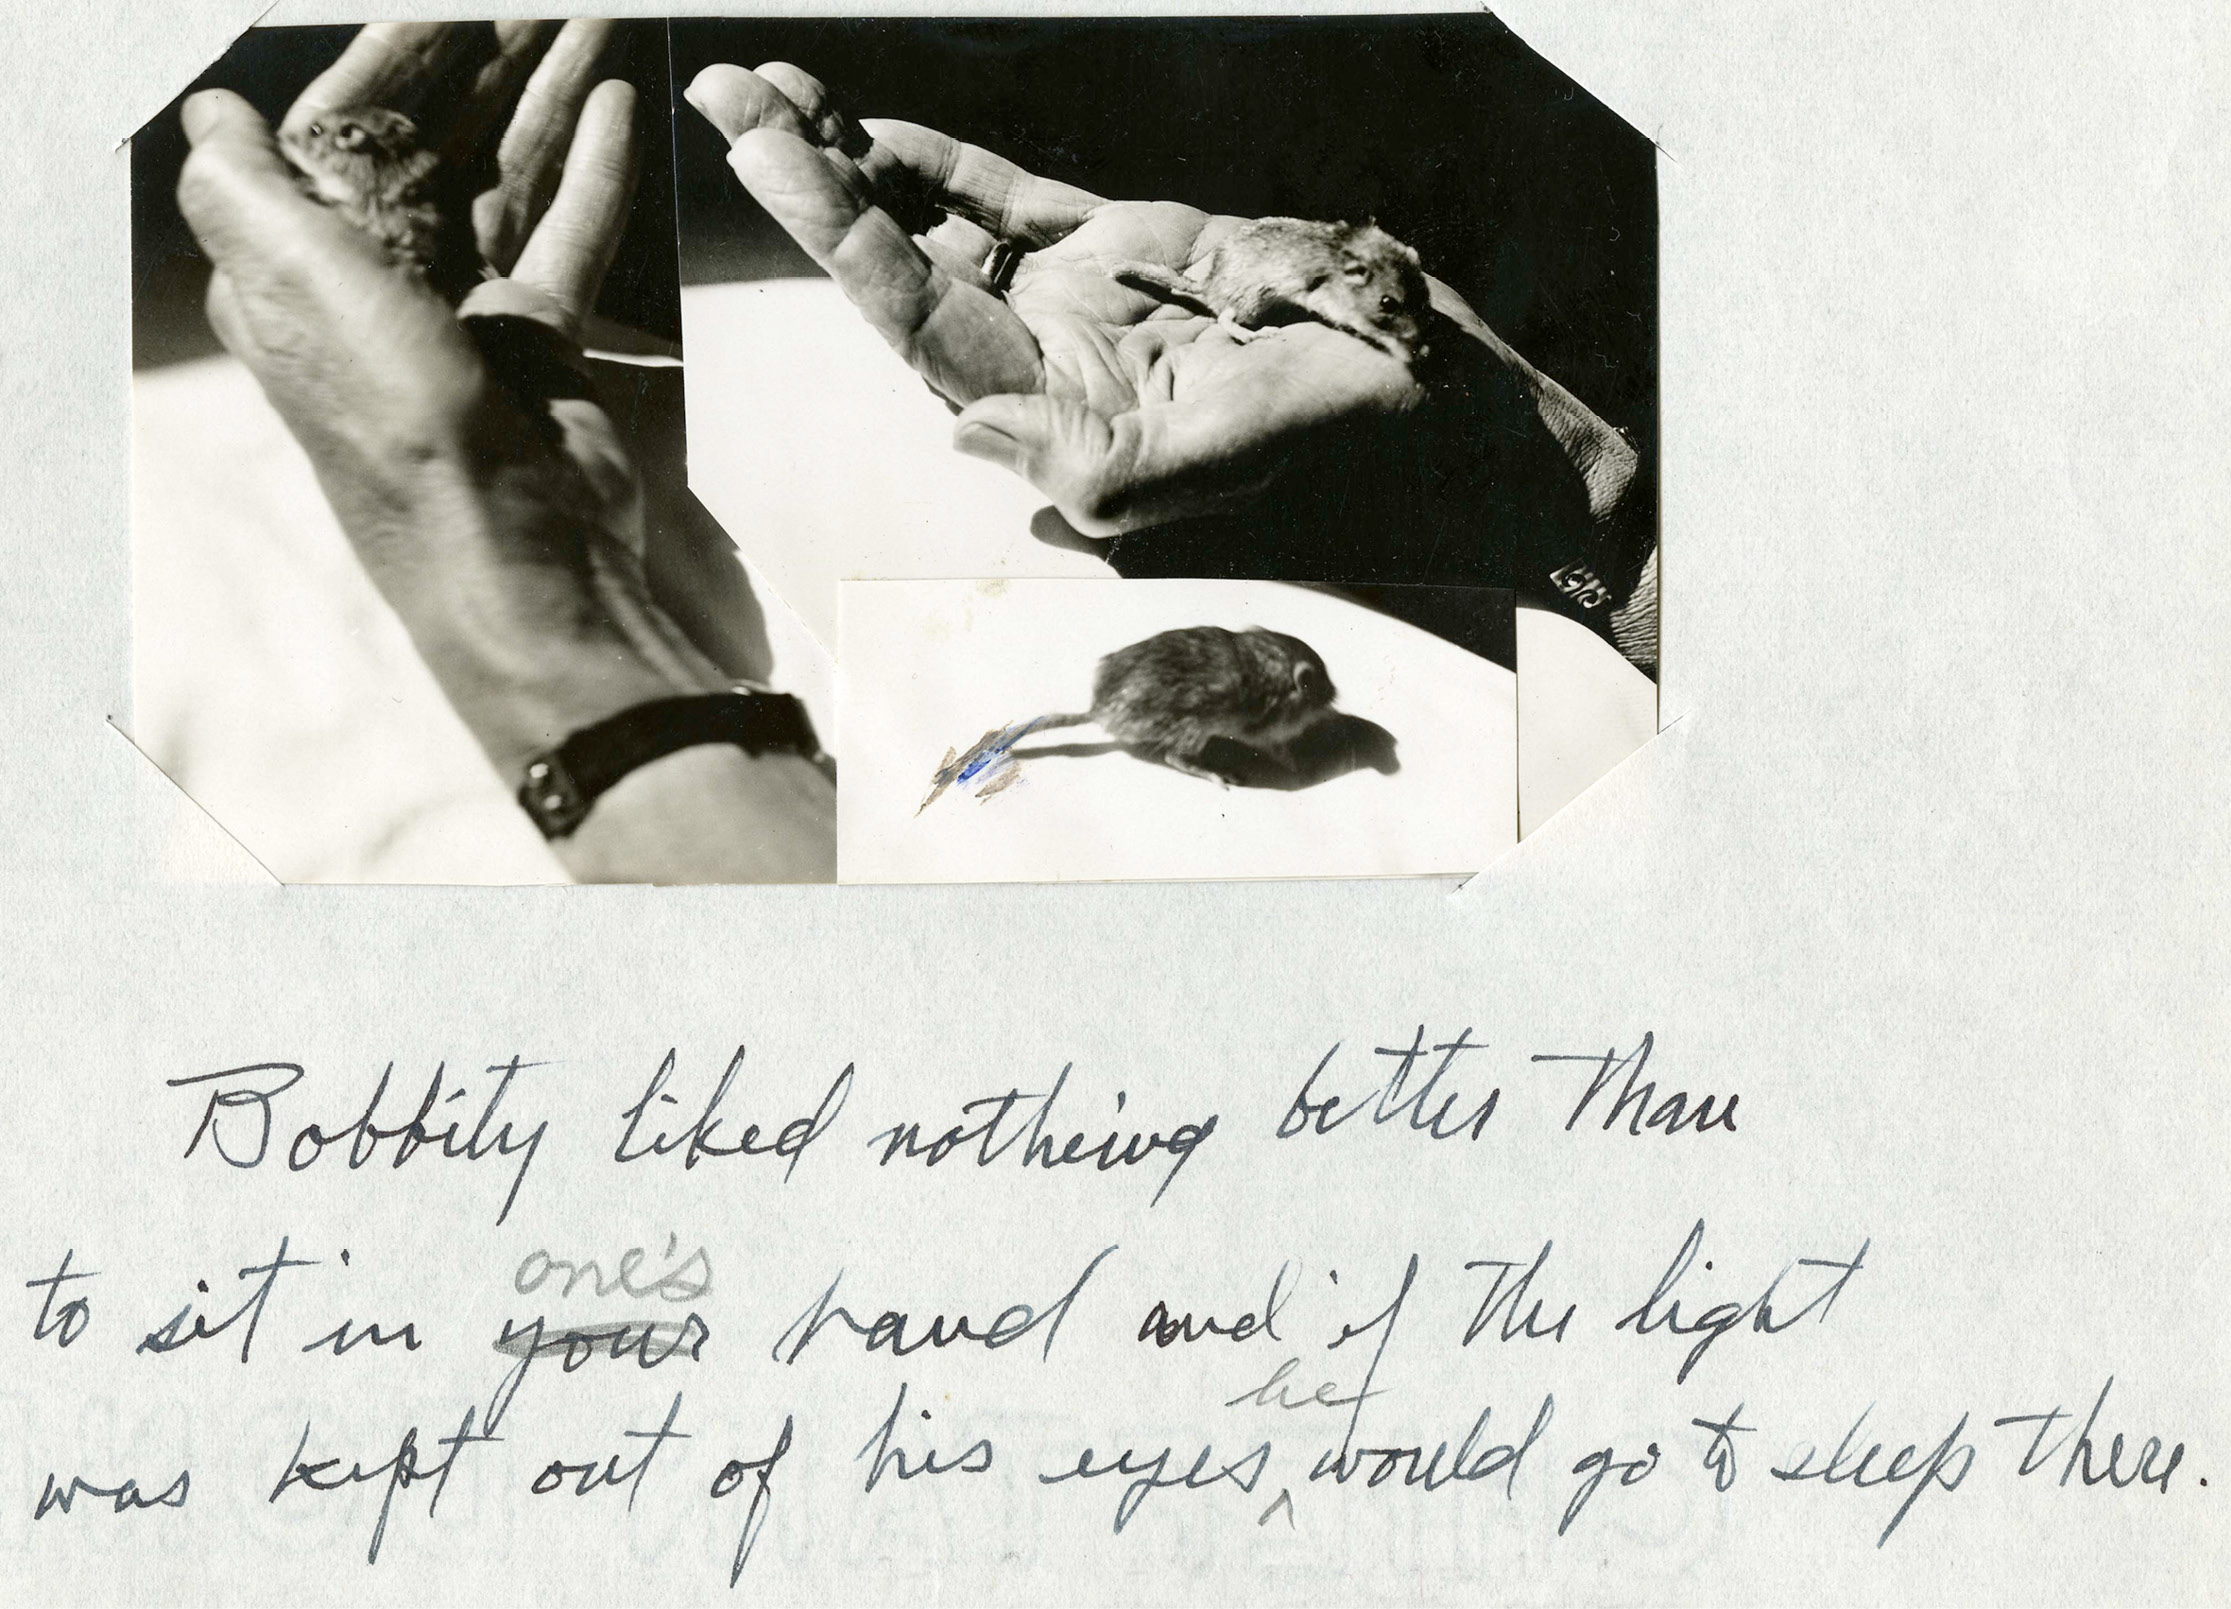 Bobbity liked nothing better than
one's
to sit in your hand and if the light
he
was kept out of his eyes ^ would go to sleep there.